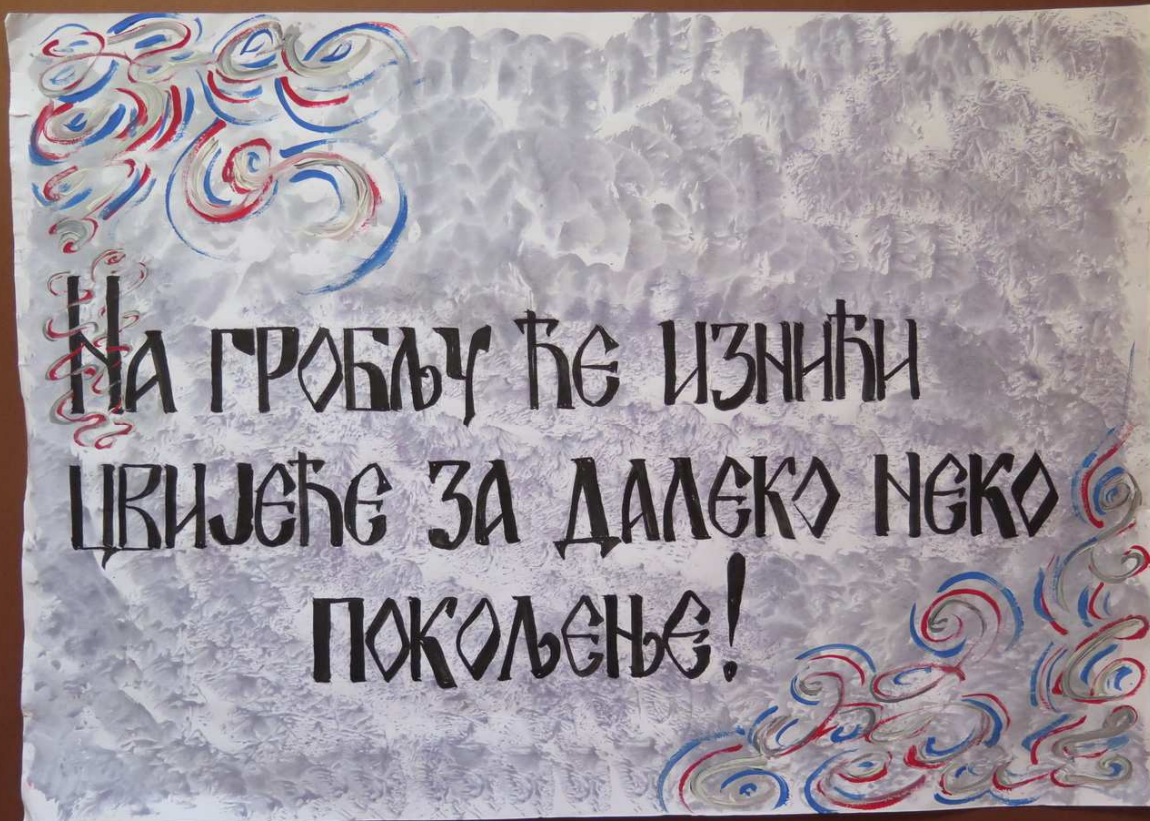 На гробљу ће изнићи
цвијеће за далеко неко
покољење!